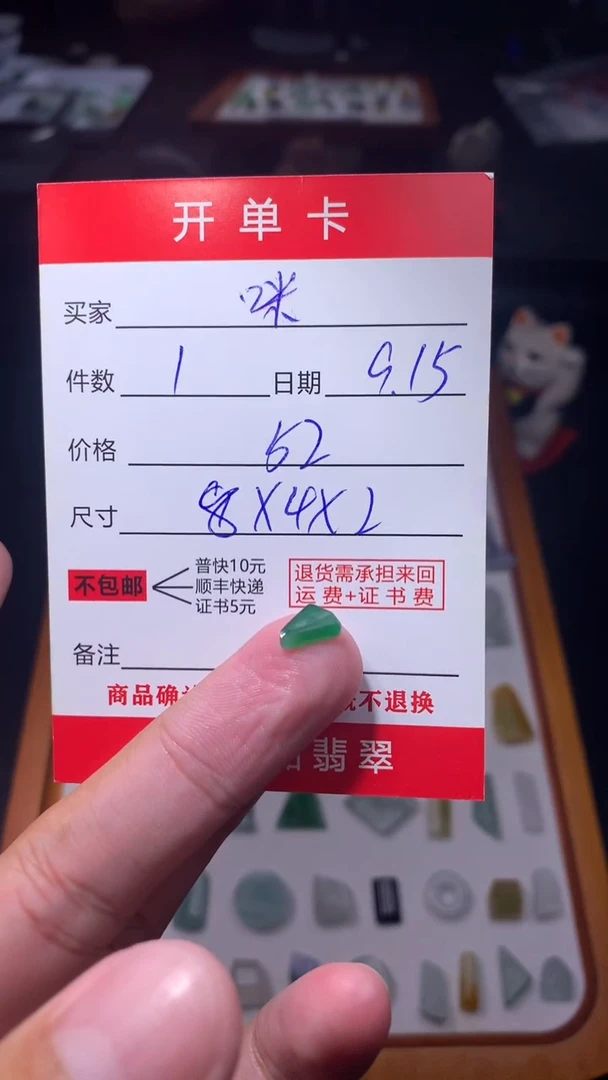 开单卡
买家 咪
件数 1 日期 9.15
价格 62
尺寸 8X4X2
不包邮
普快10元
顺丰快递
证书5元
退货需承担来回
运费+证书费
备注
商品确 不退换
翡翠